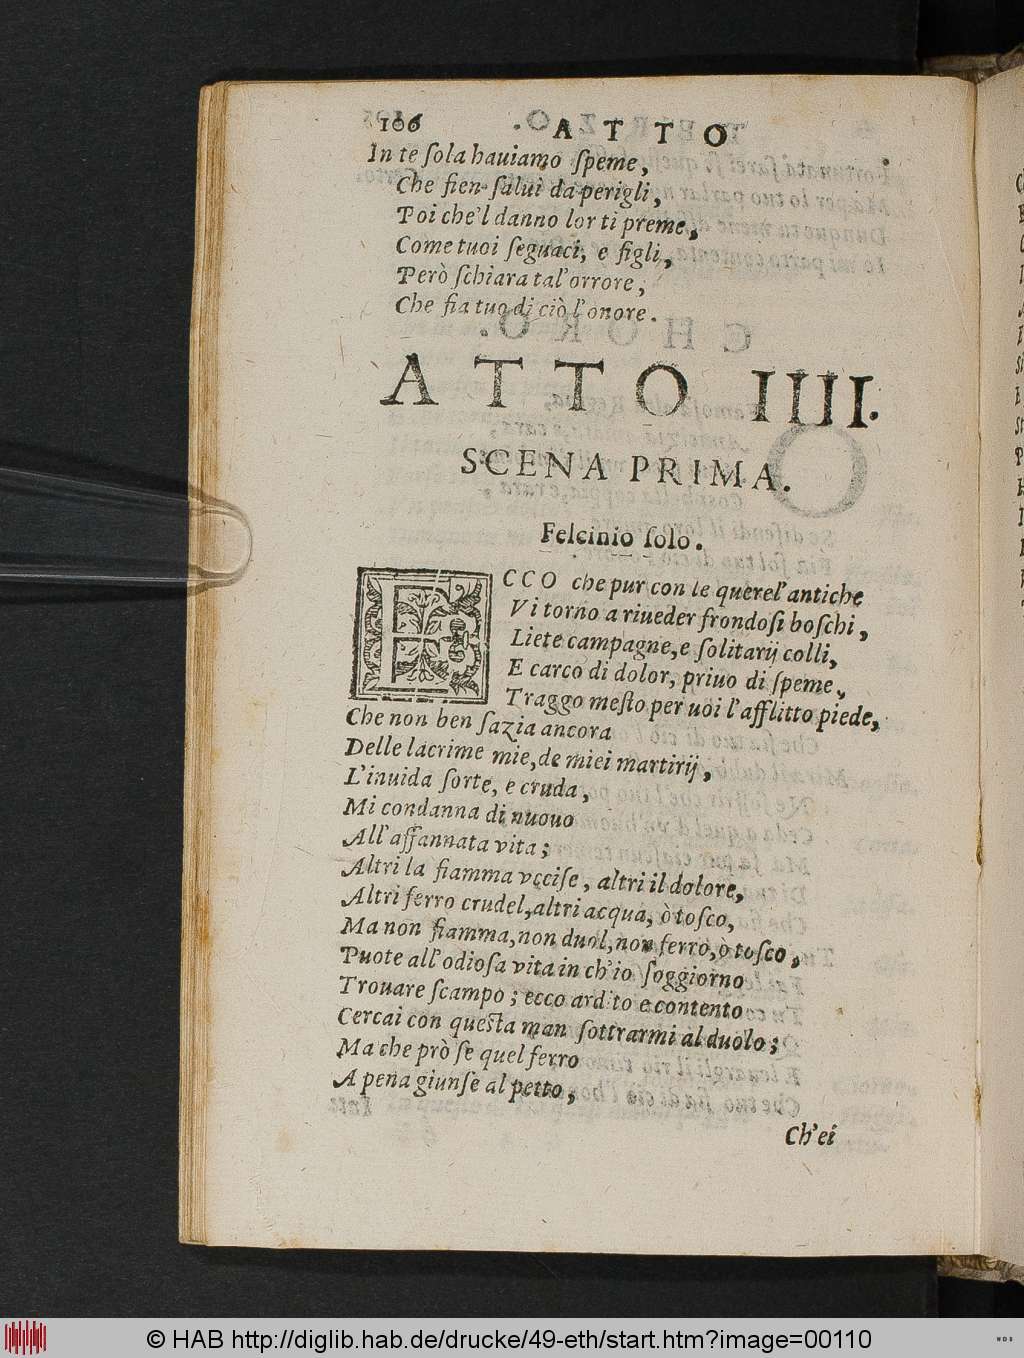 106 ATTO
In te ſola hauiamo ſpeme,
Che ſien ſalui da perigli,
Poi che'l danno lor ti preme,
Come tuoi ſeguaci, e figli,
Però ſchiara tal'orrore,
Che fia tuo di ciò l'onore.
ATTO IIII.
SCENA PRIMA.
Felcinio ſolo.
ECCO che pur con le querel'antiche
Vi torno a riueder frondoſi boſchi,
Liete campagne, e ſolitarij colli,
E carco di dolor, priuo di ſpeme,
Traggo meſto per uoi l'afflitto piede,
Che non ben ſazia ancora
Delle lacrime mie, de miei martirij,
L'inuida ſorte, e cruda,
Mi condanna di nuouo
All'affannata vita;
Altri la fiamma vcciſe, altri il dolore,
Altri ferro crudel, altri acqua, ò toſco,
Ma non fiamma, non duol, non ferro, ò toſco,
Puote all'odioſa vita in ch'io ſoggiorno
Trouare ſcampo; ecco ardito e contento
Cercai con queſta man ſottrarmi al duolo;
Ma che prò ſe quel ferro
A pena giunſe al petto,
Ch'ei
© HAB http://diglib.hab.de/drucke/49-eth/start.htm?image=00110